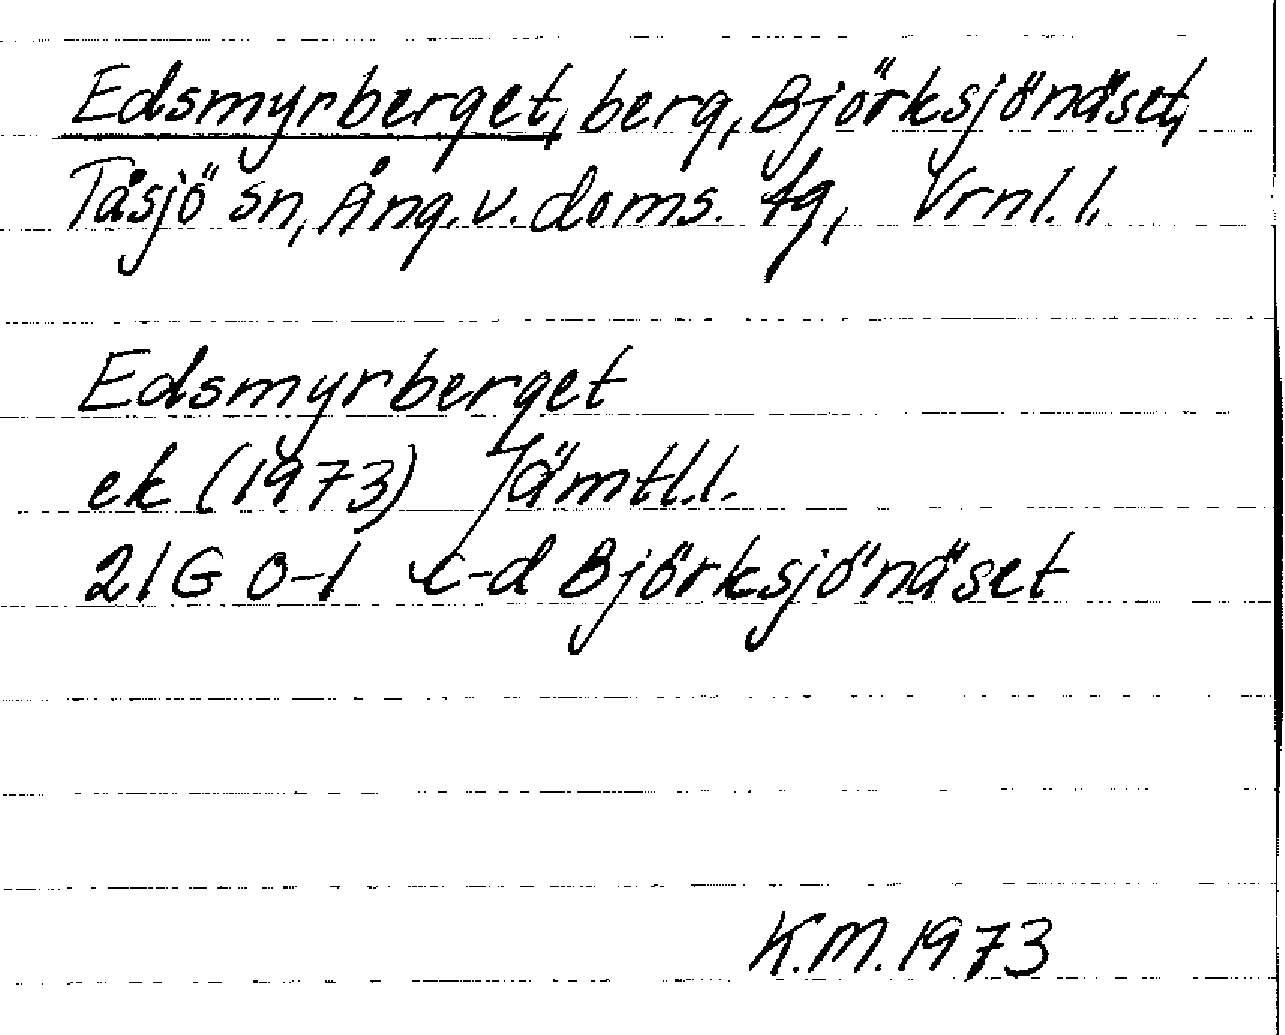 Edsmyrberget, berg, Björksjönäset,
Tåsjö sn, Ång. v. doms. tg, Vrnl. l.
Edsmyrberget
ek (1973) Jämtl. l.
21G 0-1 c-d Björksjönäset
K.M. 1973